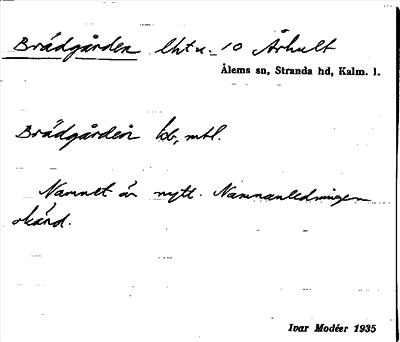 Brädgården lht u. 10 Århult
Ålems sn, Stranda hd, Kalm. l.
Brädgården bb, mtl.
Namnet är nytt. Namnanledningen
okänd.
Ivar Modéer 1935